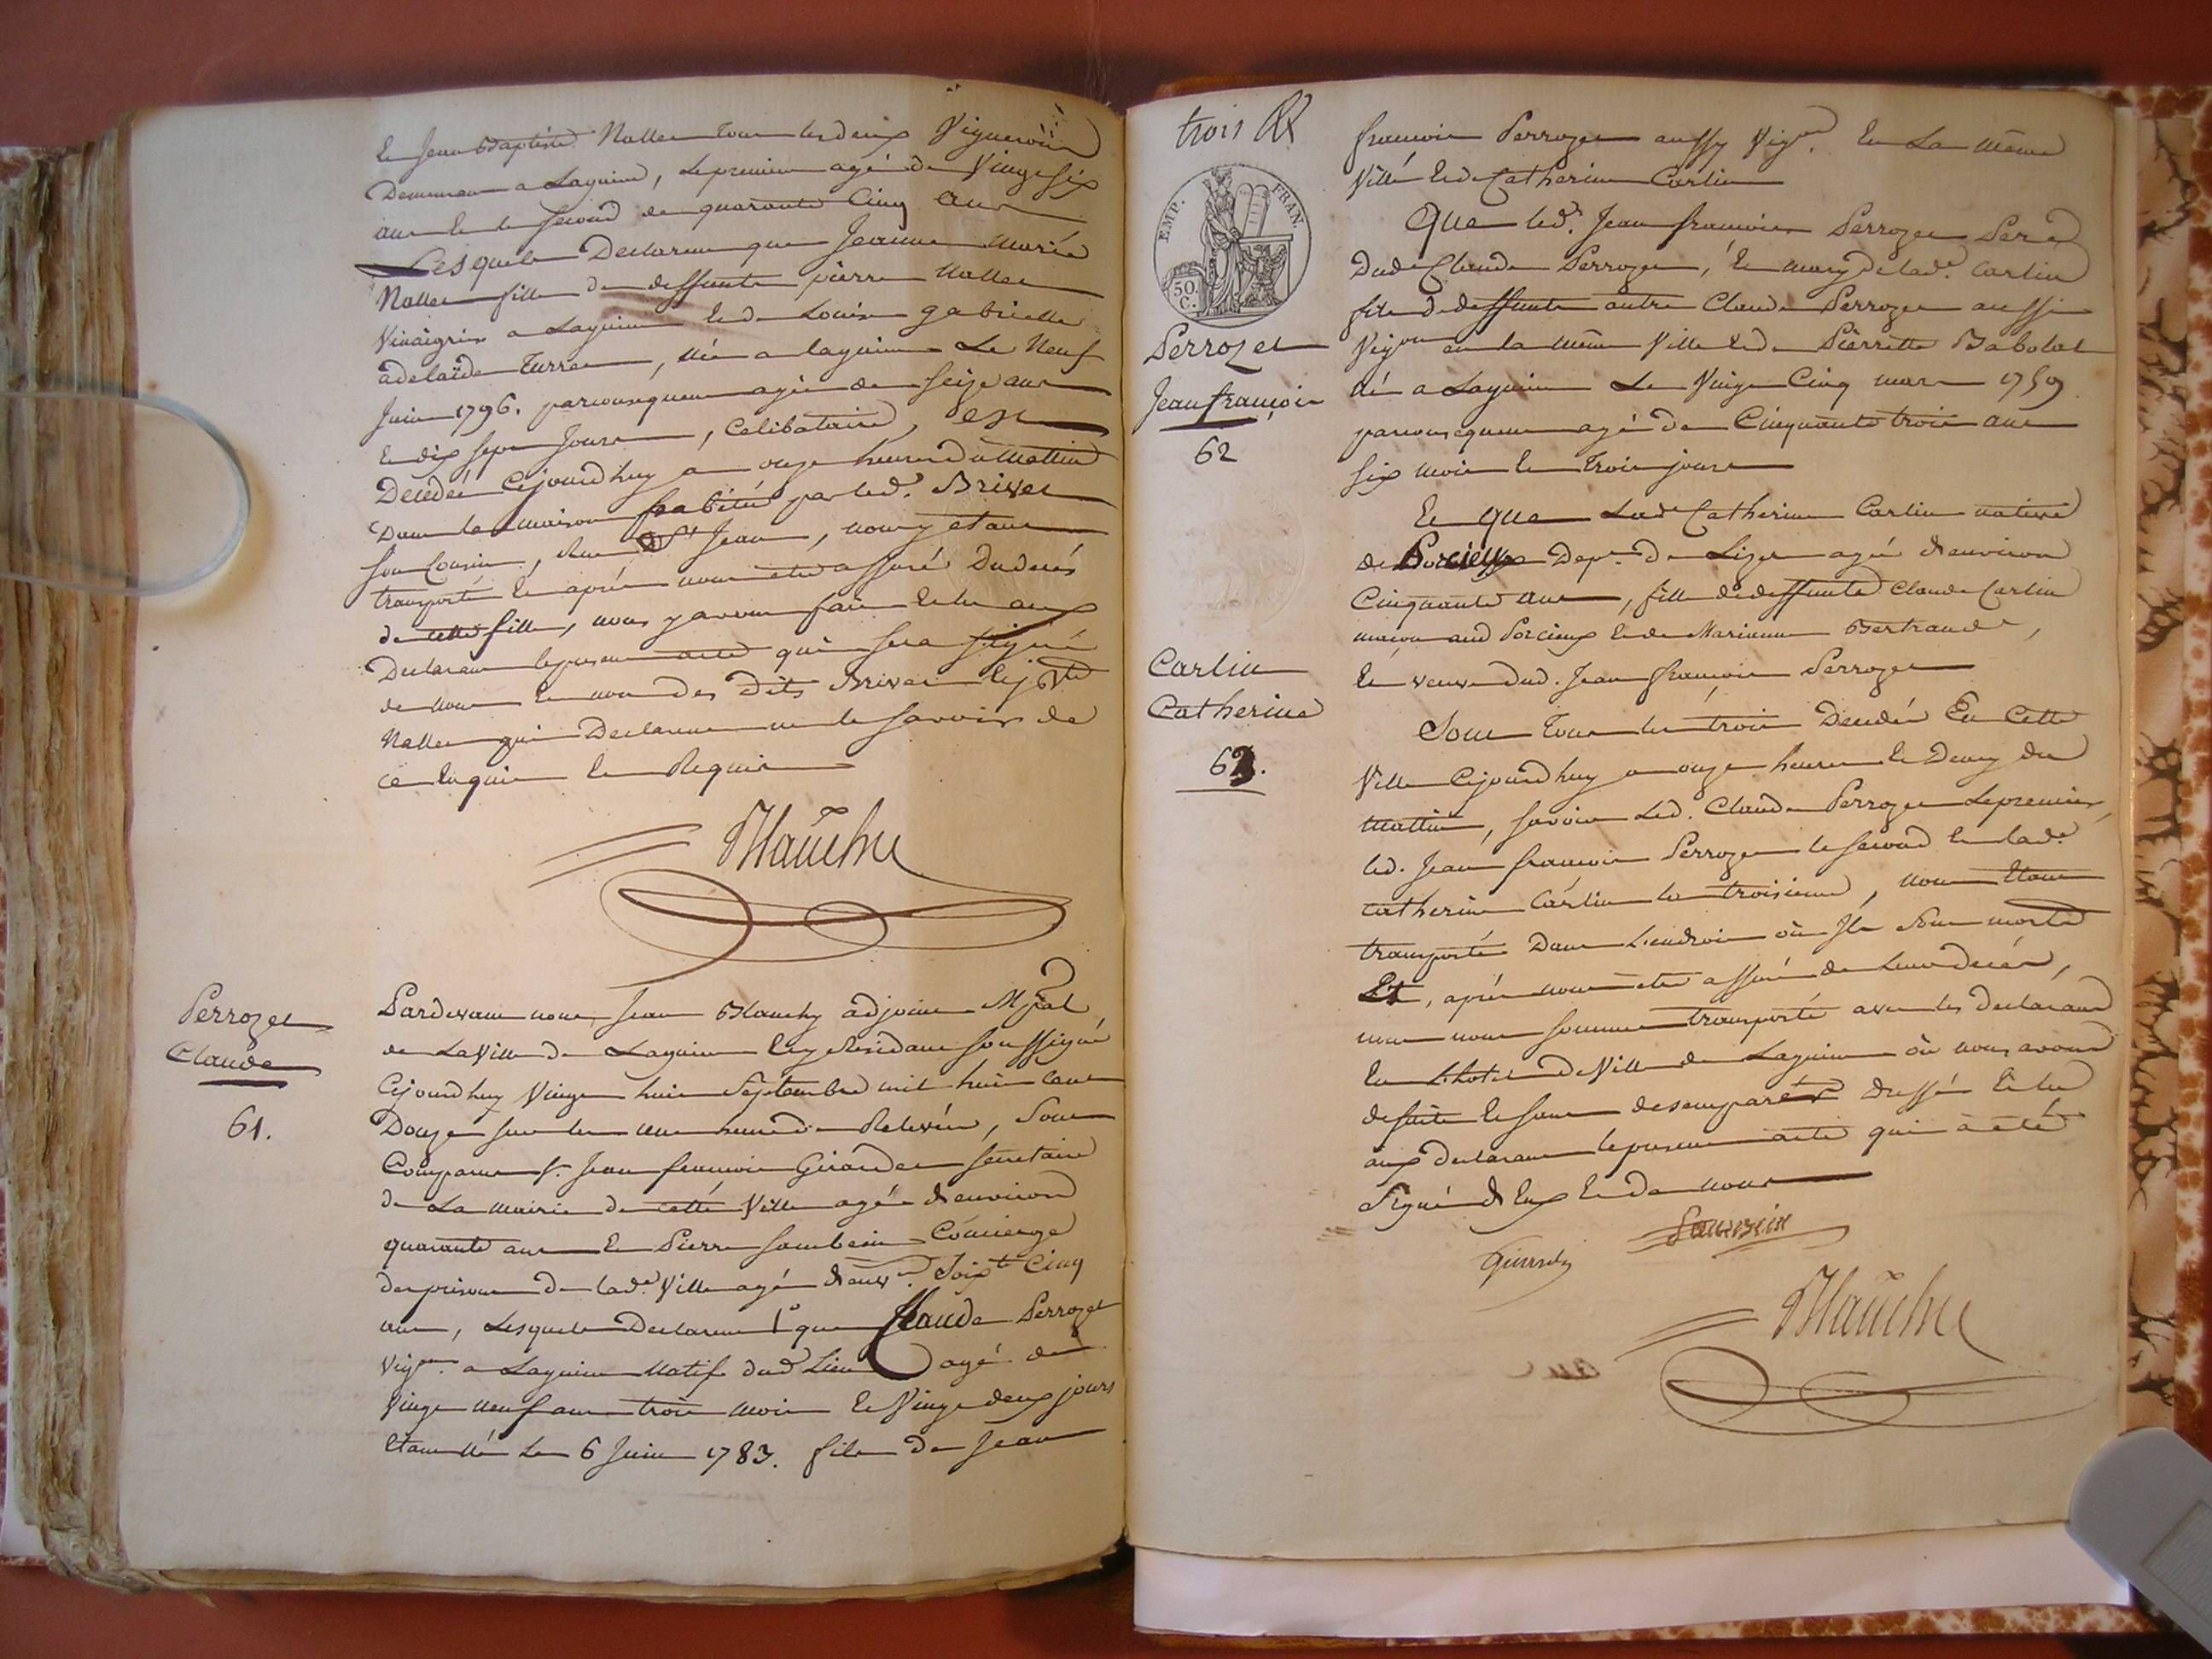 Et Jean Baptiste Nallet tous les deux Vignerons
Demeurant a Lagnieu, Le premier agé de Vingt six
ans Et le second de quarante Cinq ans
Lesquels Declarent que Jeanne Marie
Nallet fille de deffunts pierre Nallet
Vinaigrier a Lagnieu Et de Louise gabrielle
adelaïde Turret, née a lagnieu Le Neuf
Juin 1796. par consequent agée de seize ans
Et dix sept Jours, Celibataire, Est
Decedée Cejourd'huy a onze heures du Mattin
Dans la maison habitée par led. Brivet
son Cousin, Rue St Jean, nous y étant
transporté Et après nous etre assuré Du decès
de cette fille, nous y avons fait Et lu aux
Declarans le present acte qui sera signé
de nous Et non des Dits Brivet Et J. Bte
Nallet qui Declarent ne le savoir de
ce Enquis Et Requis
Blanchy
Perrozet
Claude
61.
Pardevant nous Jean Blanchy adjoint Mpal
de La Ville de Lagnieu Et y Residant soussigné
Cejourd'huy Vingt huit Septembre mil huit cent
Douze sur les une heure de Relevée, Sont
Comparus Sr. Jean francois Girardet secretaire
de La mairie de cette Ville agé d'environ
quarante ans Et Pierre Concierge
des prisons de lad.e Ville agé d'env.n Soix.te Cinq
ans, Lesquels Declarent 1° que Claude Perrozet
Vig.on a Lagnieu Natif dud. Lieu agé de
Vingt neuf ans trois mois Et Vingt deux jours
Etant né Le 6 Juin 1783. fils de Jean
trois
EMP. FRAN.
50. C.
Perrozet
Jean françois
62
Carlin
Catherine
63.
francois Perrozet aussy Vig.on En La même
Ville Et de Catherine Carlin
Que led. Jean francois Perrozet Pere
Dud. Claude Perrozet, Et mary de lad.e Carlin
fils de deffunts autre Claude Perrozet aussi
Vig.on en la même Ville Et de Pierrette Babolat
né a Lagnieu Le Vingt Cinq mars 1759
par consequent agé de Cinquante trois ans
six mois Et trois jours
Et Que Lad.e Catherine Carlin native
de Dep.t de agée d'environ
Cinquante ans, fille de deffunts Claude Carlin
maçon aud. Porcieux Et de Marianne Bertrand,
Et veuve dud. Jean francois Perrozet
Sont Tous les trois Decedés En Cette
Ville Cejourd'huy a onze heures Et Demy du
Mattin, savoir Led. Claude Perrozet Le premier,
led. Jean francois Perrozet le second Et lad.e
Catherine Carlin la troisieme, nous Etant
transporté Dans L'endroit où Ils Sont morts
Et, après nous etre assuré de Leur decès,
nous nous sommes transporté avec les declarans
En L'hotel de Ville de Lagnieu où nous avons
de suite Et sans desemparer Dressé Et lu
aux declarans le present acte qui à été
Signé d'Eux Et de nous
Blanchy